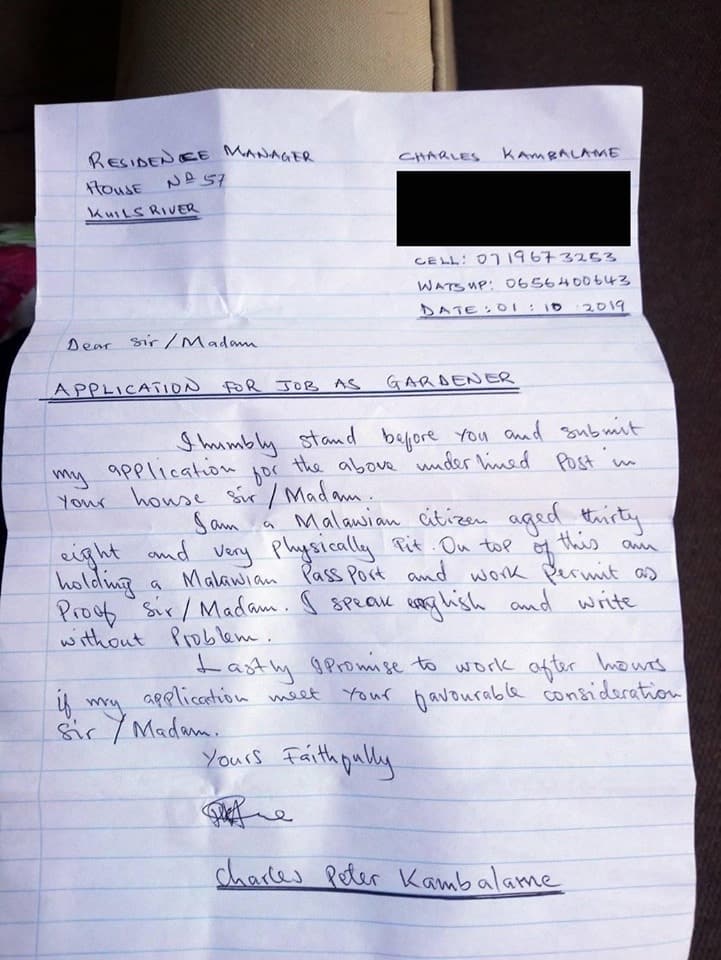 RESIDENCE MANAGER
HOUSE No 57
KUILSRIVER
CHARLES KAMBALAME
CELL: 0719673253
WATSUP: 0656400643
DATE: 01 : 10 2019
Dear Sir/Madam
APPLICATION FOR JOB AS GARDENER
I humbly stand before you and submit
my application for the above underlined Post in
Your house Sir/Madam.
I am a Malawian citizen aged thirty
eight and very Physically Fit. On top of this am
holding a Malawian PassPort and work Permit as
Proof Sir/Madam. I speak english and write
without Problem.
Lastly I promise to work after hours
if my application meet Your favourable consideration
Sir/Madam.
Yours Faithfully
Charles Peter Kambalame